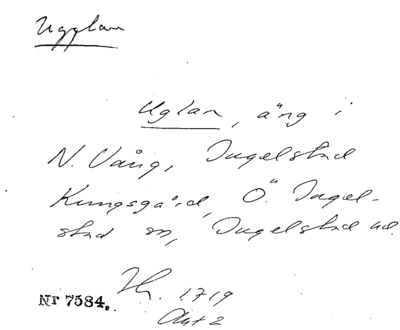 Ugglan
Uglan, äng i
N. Vång, Ingelstad
Kungsgård, Ö. Ingel-
stad sn, Ingelstad hd.
Nr 7584. 1719
Akt 2